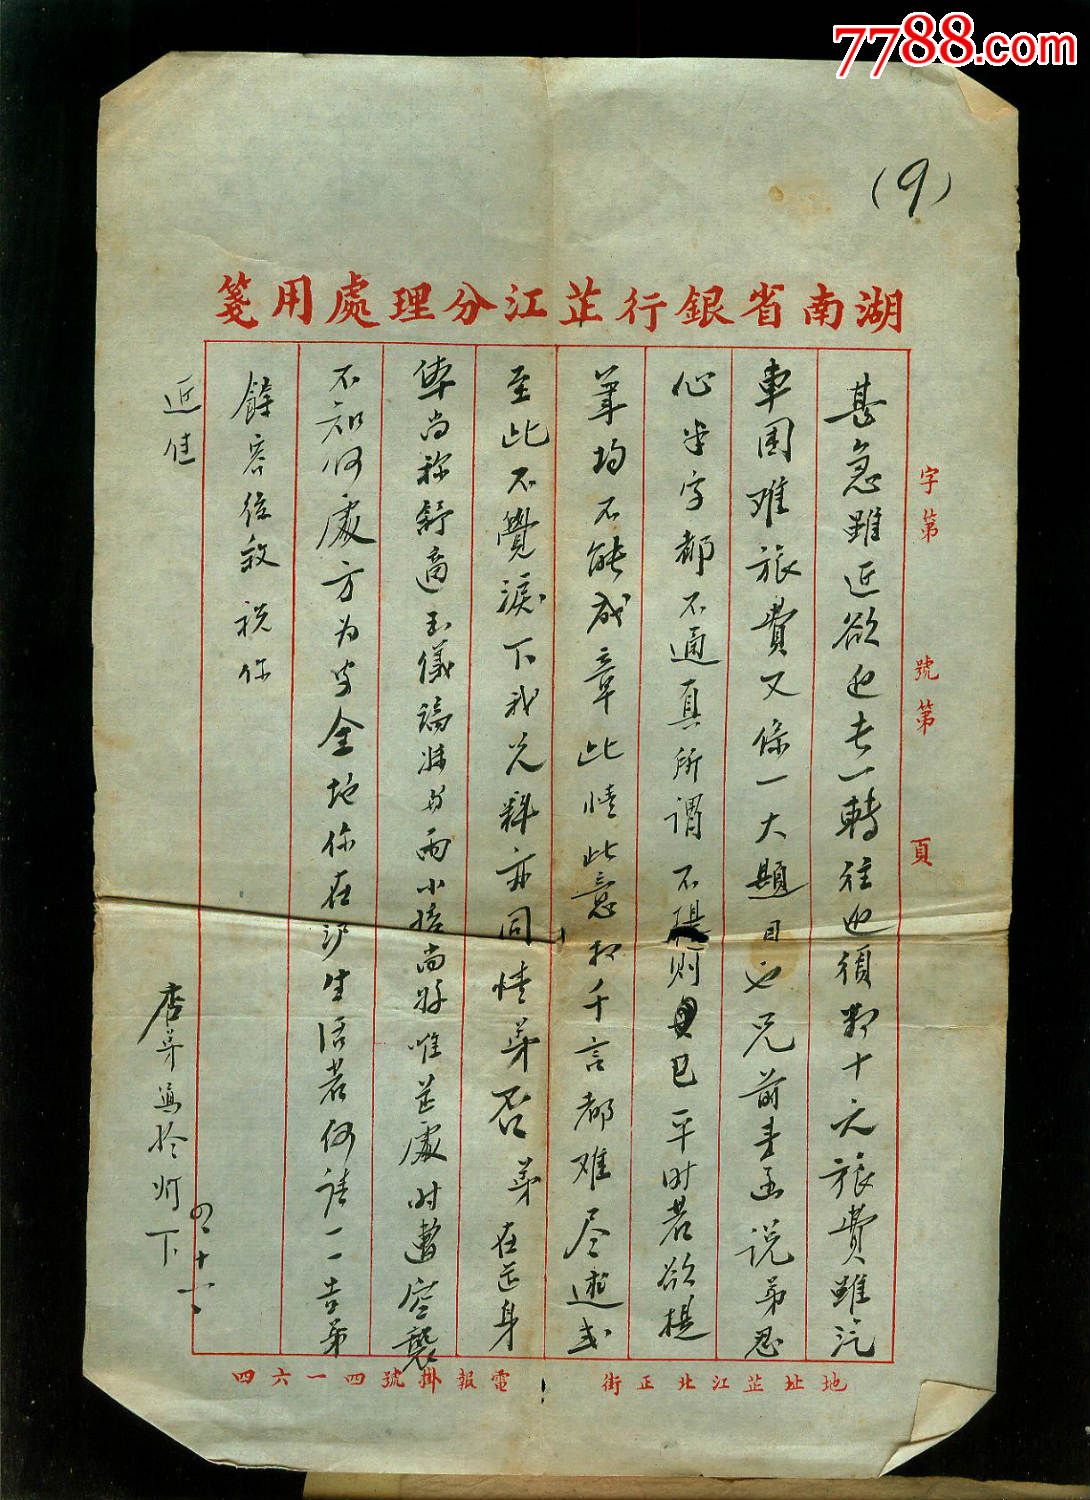 7788.com
(9)
湖南省銀行芷江分理處用箋
字第 號第 頁
甚急雖近欲也去一轉往也須數十元旅費雖汽
車困难旅費又係一大題目也兄前来函说弟忍
心半字都不通真所谓不提则已平时若欲提
筆均不能成章此情此意款千言都难尽述
至此不覺淚下我兄料亦同情弟否弟在芷身
体尚称舒適玉儀 妹 与两小孩尚好唯芷處时遭空襲
不知何處方为安全地你在 生活若何请一一告弟
餘容後敘祝你
近佳
弟 於灯下
四、十一、
地址芷江北正街
電報掛號四一六四